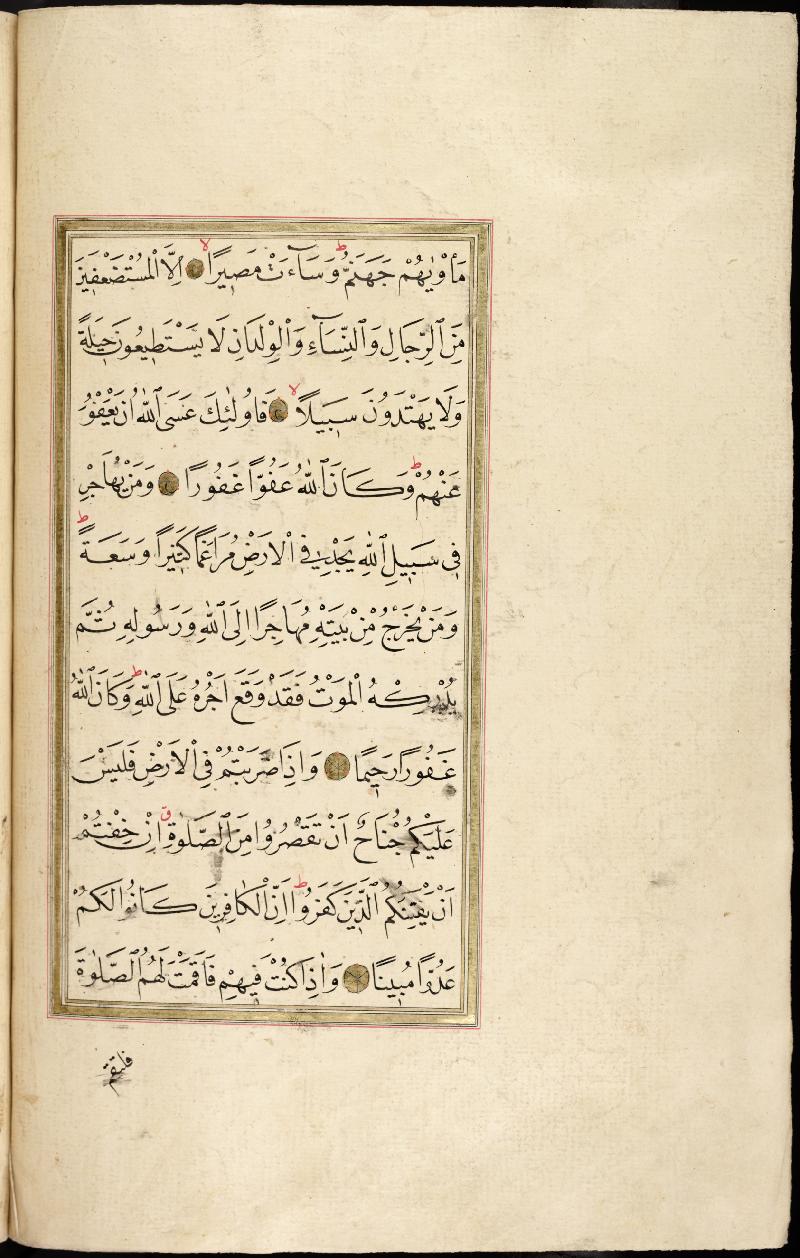 مَأْوٰيهُمْ جَهَنَّمُ ط وَسَآءَتْ مَصِيرًا لا اِلَّا الْمُسْتَضْعَفِينَ
مِنَ الرِّجَالِ وَالنِّسَآءِ وَالْوِلْدَانِ لَا يَسْتَطِيعُونَ حِيلَةً
وَلَا يَهْتَدُونَ سَبِيلًا لا فَاُولٰئِكَ عَسَى اللّٰهُ اَنْ يَعْفُوَ
عَنْهُمْ ط وَكَانَ اللّٰهُ عَفُوًّا غَفُورًا وَمَنْ يُهَاجِرْ
فِي سَبِيلِ اللّٰهِ يَجِدْ فِي الْاَرْضِ مُرَاغَمًا كَثِيرًا وَسَعَةً ط
وَمَنْ يَخْرُجْ مِنْ بَيْتِهِ مُهَاجِرًا اِلَى اللّٰهِ وَرَسُولِهِ ثُمَّ
يُدْرِكْهُ الْمَوْتُ فَقَدْ وَقَعَ اَجْرُهُ عَلَى اللّٰهِ ط وَكَانَ اللّٰهُ
غَفُورًا رَحِيمًا وَاِذَا ضَرَبْتُمْ فِي الْاَرْضِ فَلَيْسَ
عَلَيْكُمْ جُنَاحٌ اَنْ تَقْصُرُوا مِنَ الصَّلٰوةِ ق اِنْ خِفْتُمْ
اَنْ يَفْتِنَكُمُ الَّذِينَ كَفَرُوا ط اِنَّ الْكَافِرِينَ كَانُوا لَكُمْ
عَدُوًّا مُبِينًا وَاِذَا كُنْتَ فِيهِمْ فَاَقَمْتَ لَهُمُ الصَّلٰوةَ
فلتقم